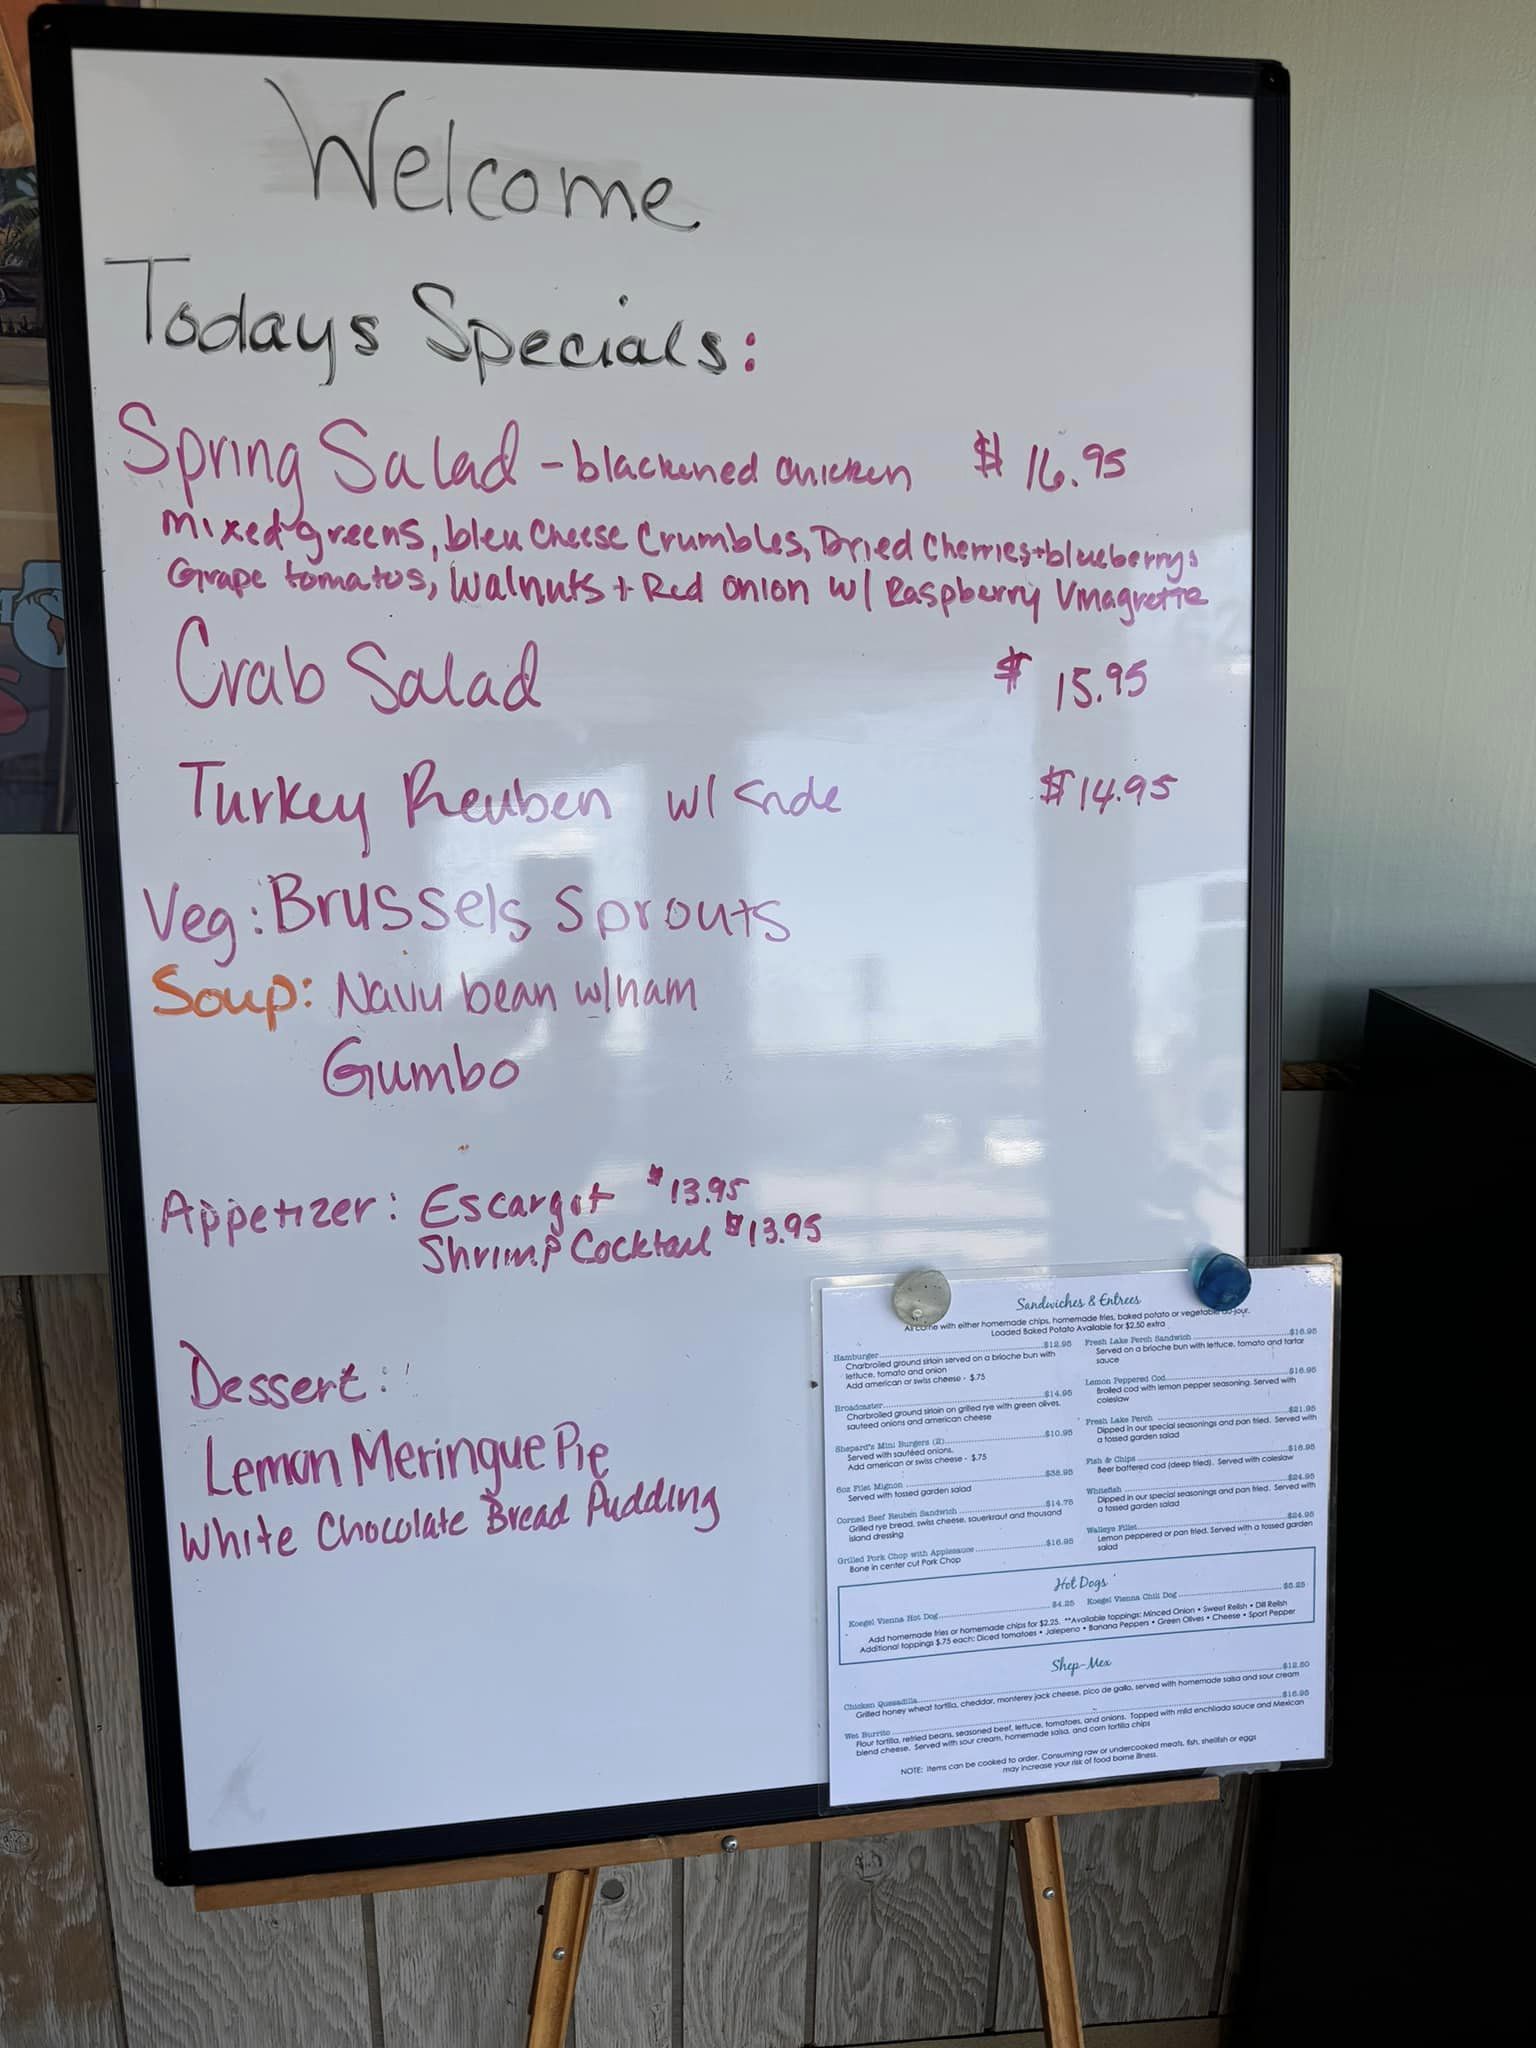 Welcome
Todays Specials:
Spring Salad - blackened chicken $ 16.95
mixed greens, bleu Cheese Crumbles, Dried Cherries + blueberrys
Grape tomatos, Walnuts + Red onion w/ Raspberry Vinagrette
Crab Salad $ 15.95
Turkey Reuben w/ side $14.95
Veg: Brussels Sprouts
Soup: Navy bean w/ham
Gumbo
Appetizer: Escargot $13.95
Shrimp Cocktail $13.95
Dessert:
Lemon Meringue Pie
White Chocolate Bread Pudding
Sandwiches & Entrees
All come with either homemade chips, homemade fries, baked potato or vegetable du-jour.
Loaded Baked Potato Available for $2.50 extra
Hamburger $12.95
Charbroiled ground sirloin served on a brioche bun with
lettuce, tomato and onion
Add american or swiss cheese - $.75
Broadcaster $14.95
Charbroiled ground sirloin on grilled rye with green olives,
sauteed onions and american cheese
Shepard's Mini Burgers (2) $10.95
Served with sautéed onions.
Add american or swiss cheese - $.75
6oz Filet Mignon $38.95
Served with tossed garden salad
Corned Beef Reuben Sandwich $14.75
Grilled rye bread, swiss cheese, sauerkraut and thousand
island dressing
Grilled Pork Chop with Applesauce $16.95
Bone in center cut Pork Chop
Fresh Lake Perch Sandwich $16.95
Served on a brioche bun with lettuce, tomato and tartar
sauce
Lemon Peppered Cod $16.95
Broiled cod with lemon pepper seasoning. Served with
coleslaw
Fresh Lake Perch $21.95
Dipped in our special seasonings and pan fried. Served with
a tossed garden salad
Fish & Chips $16.95
Beer battered cod (deep fried). Served with coleslaw
Whitefish $24.95
Dipped in our special seasonings and pan fried. Served with
a tossed garden salad
Walleye Fillet $24.95
Lemon peppered or pan fried. Served with a tossed garden
salad
Hot Dogs
Koegel Vienna Hot Dog $4.25 Koegel Vienna Chili Dog $5.25
Add homemade fries or homemade chips for $2.25. **Available toppings: Minced Onion • Sweet Relish • Dill Relish
Additional toppings $.75 each: Diced tomatoes • Jalepeno • Banana Peppers • Green Olives • Cheese • Sport Pepper
Shep-Mex
Chicken Quesadilla $12.50
Grilled honey wheat tortilla, cheddar, monterey jack cheese, pico de gallo, served with homemade salsa and sour cream
Wet Burrito $16.95
Flour tortilla, refried beans, seasoned beef, lettuce, tomatoes, and onions. Topped with mild enchilada sauce and Mexican
blend cheese. Served with sour cream, homemade salsa, and corn tortilla chips
NOTE: Items can be cooked to order. Consuming raw or undercooked meats, fish, shellfish or eggs
may increase your risk of food borne illness.